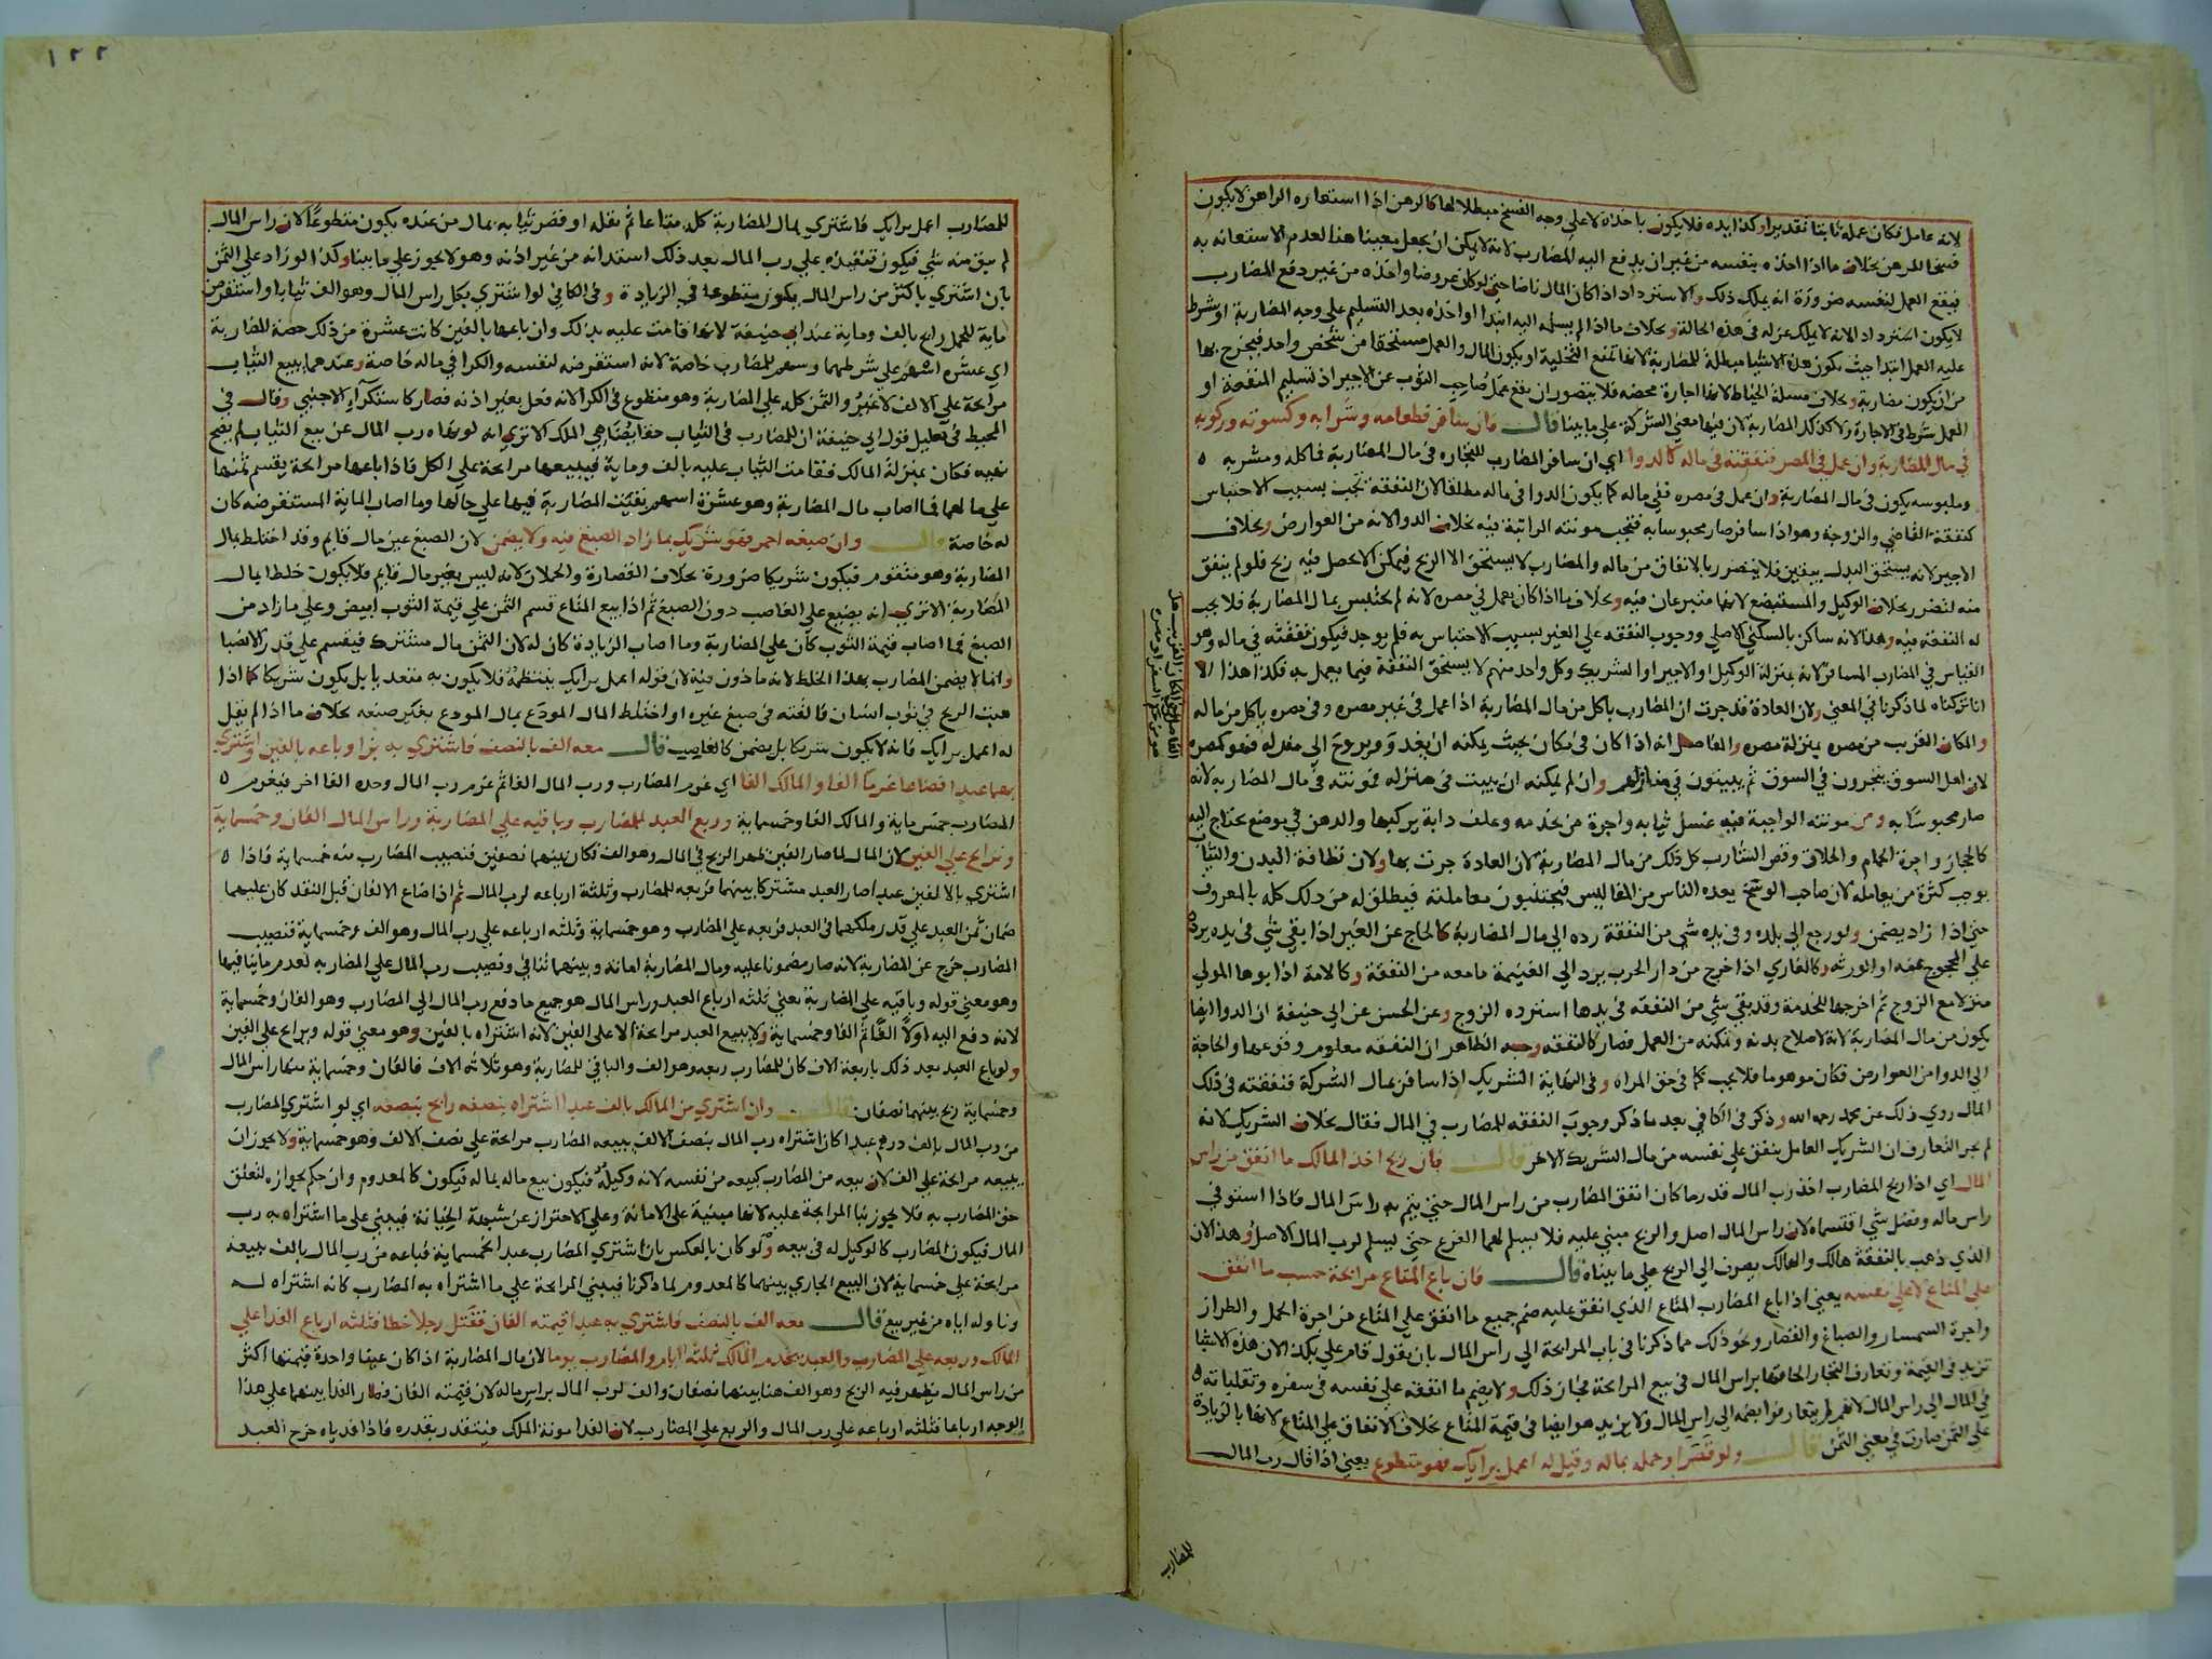 لانه عامل فكان عمله ثابتا تقديرا وكذا ايده فلا يكون باخذه لا على وجه الفسخ مبطلا لها كالرهن اذا استعاره الراهن لا يكون
فسخا للرهن بخلاف ما اذا اخذه بنفسه من غير ان يدفع اليه المضارب لانه لا يمكن ان يجعل معينا هنا لعدم الاستعانه به
فيقع العمل لنفسه ضرورة انه يملك ذلك والاسترداد اذا كان المال ناضا حتى لو كان عروضا واخذه من غير دفع المضارب
لا يكون استردادا لانه لا يملك عزله في هذه الحالة وبخلاف ما اذا لم يسلمه اليه ابتدا او اخذه بعد التسليم على وجه المضاربة او شرط
عليه العمل ابتدا حيث تكون هذه الاشيا مبطلة للمضاربة لانها تمنع التخلية او يكون المال والعمل مستحقا من شخص واحد فيخرج بها
من ان يكون مضاربة وبخلاف مسلة الخياط لانها اجارة محضه فلا يتصور ان يقع عمل صاحب الثوب عن الاجير اذ تسليم المنفعة او
العمل شرط في الاجارة ولا كذلك المضاربة لان فيها معنى الشركة على ما بينا قال فان سافر فطعامه وشرابه وكسوته وركوبه
في مال المضاربة وان عمل في المصر فنفقته في ماله كالدوا اي ان سافر المضارب للتجاره في مال المضاربة فاكله ومشربه ه
وملبوسه يكون في مال المضاربة وان عمل في مصره ففي ماله كما يكون الدوا في ماله مطلقا لان النفقة تجب بسبب الاحتباس
كنفقة القاضي والزوجة وهو اذا سافر صار محبوسا به فتجب مونته الراتبة فيه بخلاف الدوا لانه من العوارض وبخلاف
الاجير لانه يستحق البدل بيقين فلا يتضرر بالانفاق من ماله والمضارب لا يستحق الا الربح فيمكن الا يحصل فيه ربح فلو لم ينفق
منه لتضرر بخلاف الوكيل والمستبضع لانهما متبرعان فيه وبخلاف ما اذا كان يعمل في مصره لانه لم يحتبس بمال المضاربة فلا يجب
له النفقة فيه وهذا لانه ساكن بالسكنى الاصلي ووجوب النفقه على الغير بسبب الاحتباس به فلم يوجد فيكون نفقته في ماله وهو
القياس في المضارب المسافر لانه بمنزلة الوكيل او الاجير او الشريك وكل واحد منهم لا يستحق النفقة فيما يعمل به فكذا هذا الا
انا تركناه لما ذكرنا في المعنى ولان العادة قد جرت ان المضارب ياكل من مال المضاربة اذا عمل في غير مصره وفي مصره ياكل من ماله
والمكان القريب من مصره بمنزلة مصره والفاصل انه اذا كان في مكان بحيث يمكنه ان يغدو ويروح الى منزله فهو كمصره
لان اهل السوق يتجرون في السوق ثم يبيتون في منازلهم وان لم يمكنه ان يبيت في منزله فمونته في مال المضاربه لانه
صار محبوسا به ومن مونته الواجبة فيه غسل ثيابه واجرة من يخدمه وعلف دابة يركبها والدهن في موضع يحتاج اليه
كالحجاز واجرة الحمام والحلاق وقص الشارب كل ذلك من مال المضاربة لان العادة جرت بها ولان نظافة البدن والثياب
يوجب كثرة من يعامله لان صاحب الوسخ يعده الناس من المفاليس فيجتنبون معاملته فيطلق له من ذلك كله بالمعروف
حتى اذا زاد يضمن ولو رجع الى بلده وفي يده شي من النفقة رده الى مال المضاربة كالحاج عن الغير اذا بقي شي في يده يرده
على المحجوج عنه او الورثه وكالغازي اذا خرج من دار الحرب يرد الى الغنيمة ما معه من النفقة وكالامة اذا بوها المولى
منزلا مع الزوج ثم اخرجها للخدمة وقد بقي شي من النفقه في يدها استرده الزوج وعن الحسن عن ابي حنيفة ان الدوا ايضا
يكون من مال المضاربة لانه لاصلاح بدنه وتمكنه من العمل فصار كالنفقه وجه الظاهر ان النفقه معلوم وقوعها والحاجة
الى الدوا من العوارض فكان موهوما فلا يجب كما في حق المراه وفي النهاية الشريك اذا سافر بمال الشركة فنفقته في ذلك
المال روي ذلك عن محمد رحمه الله وذكر في الكافي بعد ما ذكر وجوب النفقه للمضارب في المال فقال بخلاف الشريك لانه
لم يجر التعارف ان الشريك العامل ينفق على نفسه من مال الشريك الاخر قال فان ربح اخذ المالك ما انفق من راس
المال اي اذا ربح المضارب اخذ رب المال قدر ما كان انفق المضارب من راس المال حتى يتم به راس المال فاذا استوفى
راس ماله وفضل شي اقتسماه لان راس المال اصل والربح مبني عليه فلا يسلم لهما الفرع حتى يسلم لرب المال الاصل وهذا لان
الذي ذهب بالنفقة هالك والهالك يصرف الى الربح على ما بيناه قال فان باع المتاع مرابحة حسب ما انفق
على المتاع لا على نفسه يعني اذا باع المضارب المتاع الذي انفق عليه ضم جميع ما انفق على المتاع من اجرة الحمل والطراز
واجرة السمسار والصباغ والقصار ونحو ذلك مما ذكرنا في باب المرابحة الى راس المال بان يقول قام علي بكذا لان هذه الاشيا
تزيد في القيمة وتعارف التجار الحاقها براس المال في بيع المرابحة فجاز ذلك ولا يضم ما انفقه على نفسه في سفره وتقلباته ه
في المال الى راس المال لانهم لم يتعارفوا ضمه الى راس المال ولا يزيد هو ايضا في قيمة المتاع بخلاف الانفاق على المتاع لانها بالزيادة
على الثمن صارت في معنى الثمن قال ولو قصر او حمله بماله وقيل له اعمل برايك فهو متطوع يعني اذا قال رب المال
للمضارب
١٢٢
للمضارب اعمل برايك فاشترى بمال المضاربة كله متاعا ثم نقله او قصر ثيابه بمال من عنده يكون متطوعا لان راس المال
لم يبق منه شي فيكون تنفيذه على رب المال بعد ذلك استدانه من غير اذنه وهو لا يجوز على ما بينا وكذا لو زاد على الثمن
بان اشترى باكثر من راس المال يكون متطوعا في الزيادة وفي الكافي لو اشترى بكل راس المال وهو الف ثيابا واستقرض
ماية للحمل رابح بالف وماية عند ابي حنيفة لانها قامت عليه بذلك وان باعها بالفين كانت عشرة من ذلك حصة المضاربة
اي عشره اسهم على شرطهما وسهم للمضارب خاصة لانه استقرضه لنفسه والكرا في ماله خاصة وعندهما يبيع الثياب
مرابحة على الالف لا غير والثمن كله على المضاربة وهو متطوع في الكرا لانه فعل بغير اذنه فصار كاستكرآء الاجنبي وقال في
المحيط في تعليل قول ابي حنيفة ان للمضارب في الثياب حقا يضاهي الملك الا ترى انه لو نهاه رب المال عن بيع الثياب لم يصح
نهيه فكان بمنزلة المالك فقامت الثياب عليه بالف وماية فيبيعها مرابحة على الكل فاذا باعها مرابحة يقسم ثمنها
على ما لهما فما اصاب مال المضاربة وهو عشرة اسهم بقيت المضاربة فيها على حالها وما اصاب الماية المستقرضه كان
له خاصة قال وان صبغه احمر فهو شريك بما زاد الصبغ فيه ولا يضمن لان الصبغ عين مال قايم وقد اختلط بمال
المضاربة وهو متقوم فيكون شريكا ضرورة بخلاف القصارة والحملان لانه ليس بعين مال قايم فلا يكون خلطا بمال
المضاربة الا ترى انه يضيع على الغاصب دون الصبغ ثم اذا بيع المتاع قسم الثمن على قيمة الثوب ابيض وعلى ما زاد من
الصبغ فما اصاب قيمة الثوب كان على المضاربة وما اصاب الزيادة كان له لان الثمن مال مشترك فيقسم على قدر الانصبا
وانما لا يضمن المضارب بهذا الخلط لانه ماذون فيه لان قوله اعمل برايك ينتظمه فلا يكون به متعديا بل يكون شريكا كما اذا
هبت الريح في ثوب انسان فالقته في صبغ غيره او اختلط المال المودع بمال المودع بغير صنعه بخلاف ما اذا لم يقل
له اعمل برايك فانه لا يكون شريكا بل يضمن كالغاصب قال معه الف بالنصف فاشترى به بزا وباعه بالفين واشترى
بهما عبدا فضاعا غرما الفا والمالك الفا اي غرم المضارب ورب المال الفا ثم غرم رب المال وحده الفا اخر فيغرم ه
المضارب خمس ماية والمالك الفا وخمسماية وربع العبد للمضارب وباقيه على المضاربة وراس المال الفان وخمسماية
ويرابح على الفين لان المال لما صار الفين ظهر الربح في المال وهو الف فكان بينهما نصفين فنصيب المضارب منه خمسماية فاذا ه
اشترى بالالفين عبدا صار العبد مشتركا بينهما فربعه للمضارب وثلثة ارباعه لرب المال ثم اذا ضاع الالفان قبل النقد كان عليهما
ضمان ثمن العبد على قدر ملكهما في العبد فربعه على المضارب وهو خمسماية وثلثه ارباعه على رب المال وهو الف وخمسماية فنصيب
المضارب خرج عن المضاربة لانه صار مضمونا عليه ومال المضاربة امانه وبينهما تنافي ونصيب رب المال على المضاربه لعدم ما ينافيها
وهو معنى قوله وباقيه على المضاربة يعني ثلثه ارباع العبد وراس المال هو جميع ما دفع رب المال الى المضارب وهو الفان وخمسماية
لانه دفع اليه اولا الفا ثم الفا وخمسماية ولا يبيع العبد مرابحة الا على الفين لانه اشتراه بالفين وهو معنى قوله ويرابح على الفين
ولو باع العبد بعد ذلك باربعة الاف كان للمضارب ربعه وهو الف والباقي للمضاربة وهو ثلاثه الاف فالفان وخمسماية منها راس المال
وخمسماية ربح بينهما نصفان قال وان اشترى من المالك بالف عبدا اشتراه بنصفه رابح بنصفه اي لو اشترى المضارب
من رب المال بالف درهم عبدا كان اشتراه رب المال بنصف الالف يبيعه المضارب مرابحة على نصف الالف وهو خمسماية ولا يجوز ان
يبيعه مرابحة على الف لان بيعه من المضارب كبيعه من نفسه لانه وكيله فيكون بيع ماله بماله فيكون كالمعدوم وان حكم بجوازه لتعلق
حق المضارب به فلا يجوز بنا المرابحة عليه لانها مبنية على الامانة وعلى الاحتراز عن شبهة الخيانة فيبنى على ما اشتراه به رب
المال فيكون المضارب كالوكيل له في بيعه ولو كان بالعكس بان اشترى المضارب عبدا بخمسماية فباعه من رب المال بالف يبيعه
مرابحة على خمسماية لان البيع الجاري بينهما كالمعدوم لما ذكرنا فيبنى المرابحة على ما اشتراه به المضارب كانه اشتراه له
وناوله اياه من غير بيع قال معه الف بالنصف فاشترى به عبدا قيمته الفان فقتل رجلا خطا فثلثه ارباع الفدا على
المالك وربعه على المضارب والعبد يخدم المالك ثلثه ايام والمضارب يوما لان مال المضاربة اذا كان عينا واحدة قيمتها اكثر
من راس المال يظهر فيه الربح وهو الف هنا بينهما نصفان والف لرب المال براس ماله لان قيمته الفان فصار الفدا بينهما على هذا
الوجه ارباعا فثلثه ارباعه على رب المال والربع على المضارب لان الفدا مونة الملك فيتقدر بقدره فاذا فدياه خرج العبد